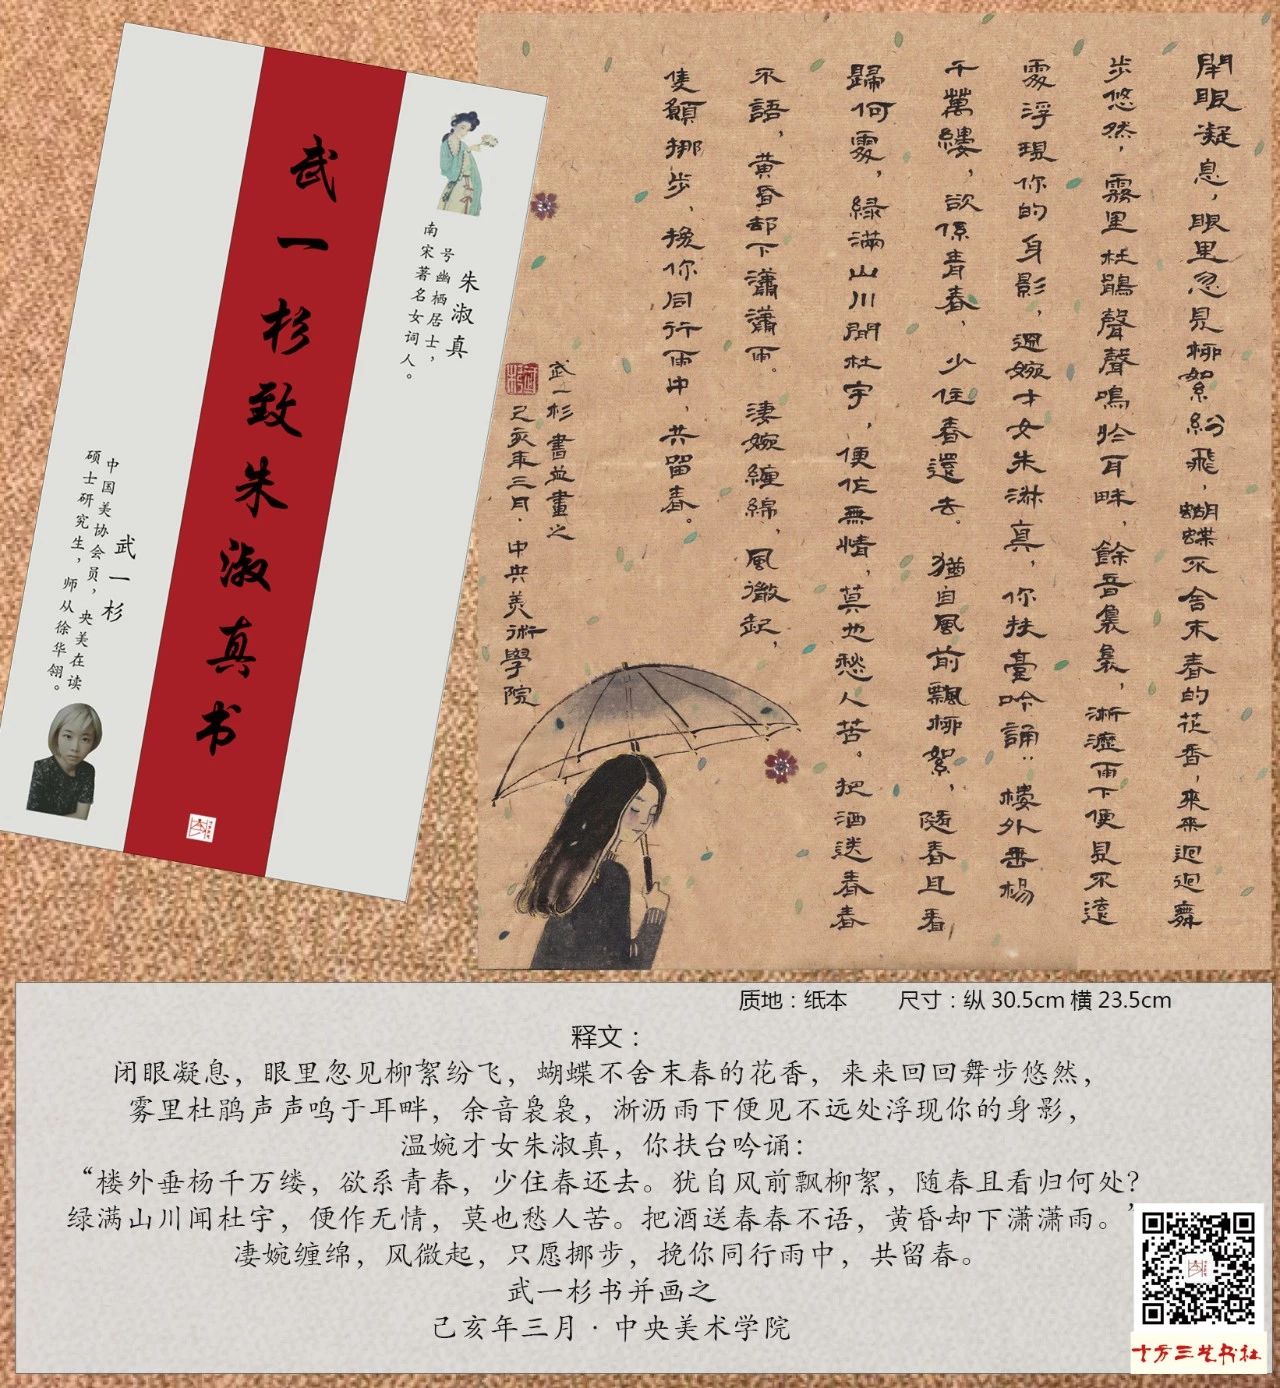 武一杉致朱淑真书
朱淑真
号幽栖居士，
南宋著名女词人。
武一杉
中国美协会员，央美在读
硕士研究生，师从徐华翎。
閉眼凝息，眼里忽見栁絮紛飛，蝴蝶不舍末春的花香，來來迴迴舞
步悠然，霧里杜鵑聲聲鳴於耳畔，餘音裊裊，淅瀝雨下便見不遠
處浮現你的身影，溫婉才女朱淑真，你扶臺吟誦：樓外垂楊
千萬縷，欲係青春，少住春還去。猶自風前飄栁絮，隨春且看
歸何處，綠滿山川聞杜宇，便作無情，莫也愁人苦。把酒送春春
不語，黄昏却下瀟瀟雨。淒婉纏綿，風微起，
隻願挪步，挽你同行雨中，共留春。
武一杉書並畫之
己亥年三月·中央美術學院
质地：纸本 尺寸：纵30.5cm 横23.5cm
释文：
闭眼凝息，眼里忽见柳絮纷飞，蝴蝶不舍末春的花香，来来回回舞步悠然，
雾里杜鹃声声鸣于耳畔，余音袅袅，淅沥雨下便见不远处浮现你的身影，
温婉才女朱淑真，你扶台吟诵：
“楼外垂杨千万缕，欲系青春，少住春还去。犹自风前飘柳絮，随春且看归何处？
绿满山川闻杜宇，便作无情，莫也愁人苦。把酒送春春不语，黄昏却下潇潇雨。”
凄婉缠绵，风微起，只愿挪步，挽你同行雨中，共留春。
武一杉书并画之
己亥年三月·中央美术学院
十方三艺书社